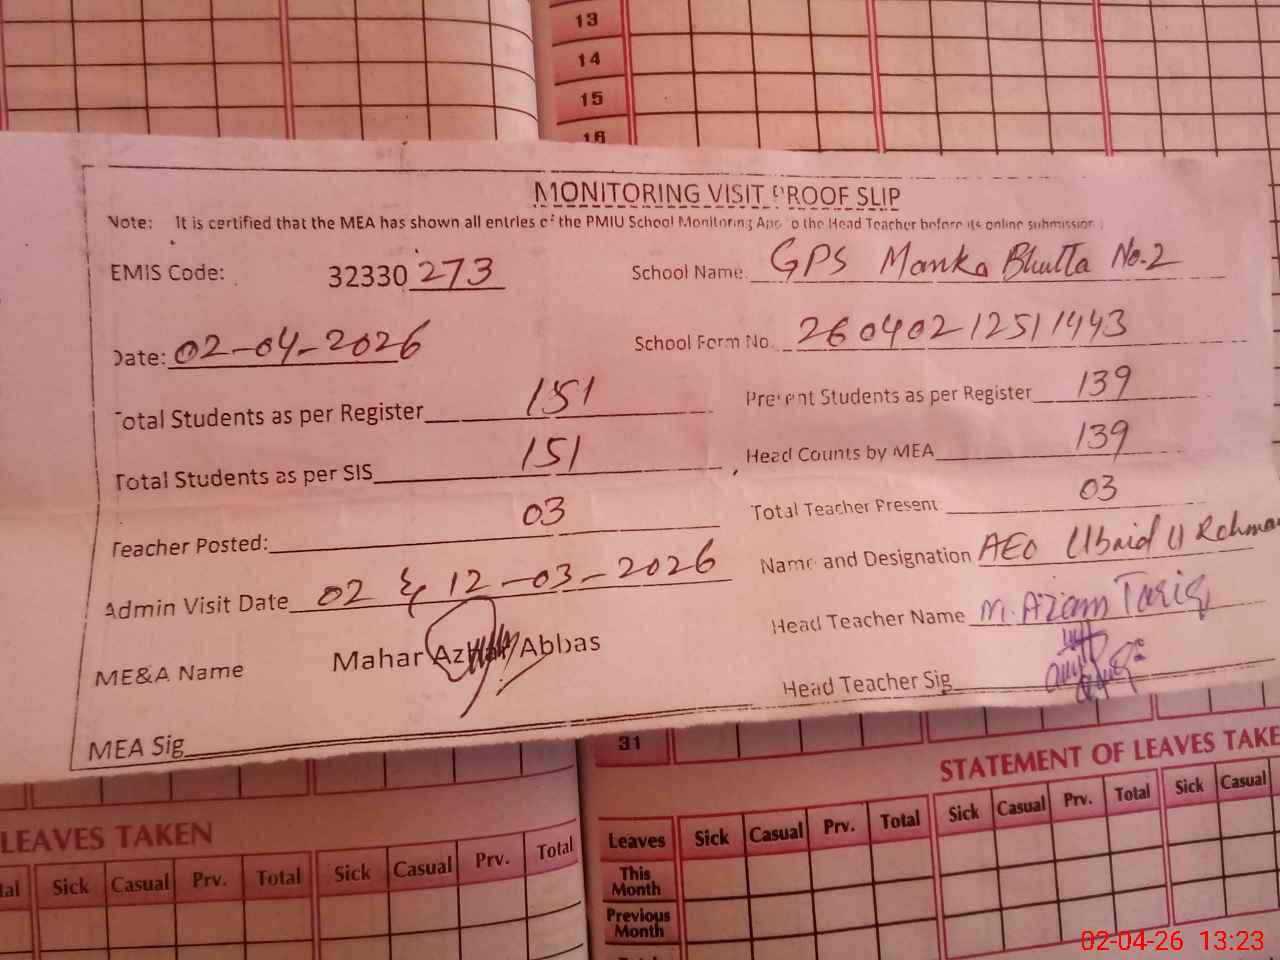 13
14
15
16
MONITORING VISIT PROOF SLIP
Note: It is certified that the MEA has shown all entries of the PMIU School Monitoring App to the Head Teacher before its online submission
EMIS Code: 32330273 School Name: GPS Manka Bhutta No.2
Date: 02-04-2026 School Form No. 26040212511443
Total Students as per Register 151 Present Students as per Register 139
Total Students as per SIS 151 Head Counts by MEA 139
Teacher Posted: 03 Total Teacher Present: 03
Admin Visit Date 02 & 12-03-2026 Name and Designation AEO Ubaid U Rehma
ME&A Name Mahar Azhar Abbas Head Teacher Name M. Azam Tariq
MEA Sig Head Teacher Sig
31
STATEMENT OF LEAVES TAKE
LEAVES TAKEN
Leaves Sick Casual Prv. Total Sick Casual Prv. Total Sick Casual
tal Sick Casual Prv. Total Sick Casual Prv. Total
This Month
Previous Month
02-04-26 13:23